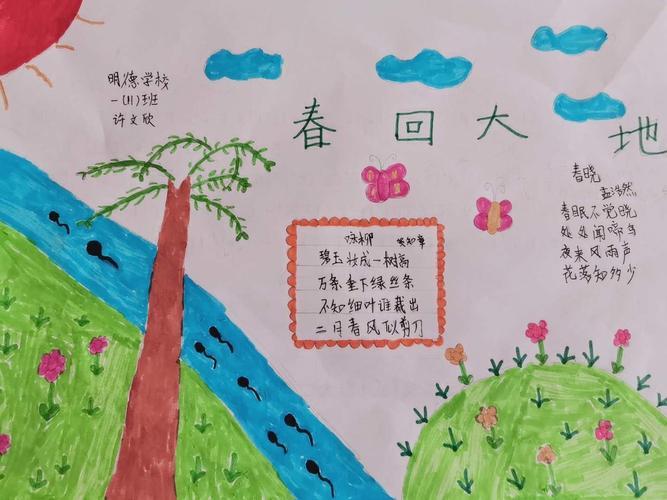 明德学校
一(11)班
许文欣
春回大地
咏柳 贺知章
碧玉妆成一树高
万条垂下绿丝条
不知细叶谁裁出
二月春风似剪刀
春晓
孟浩然
春眠不觉晓
处处闻啼鸟
夜来风雨声
花落知多少